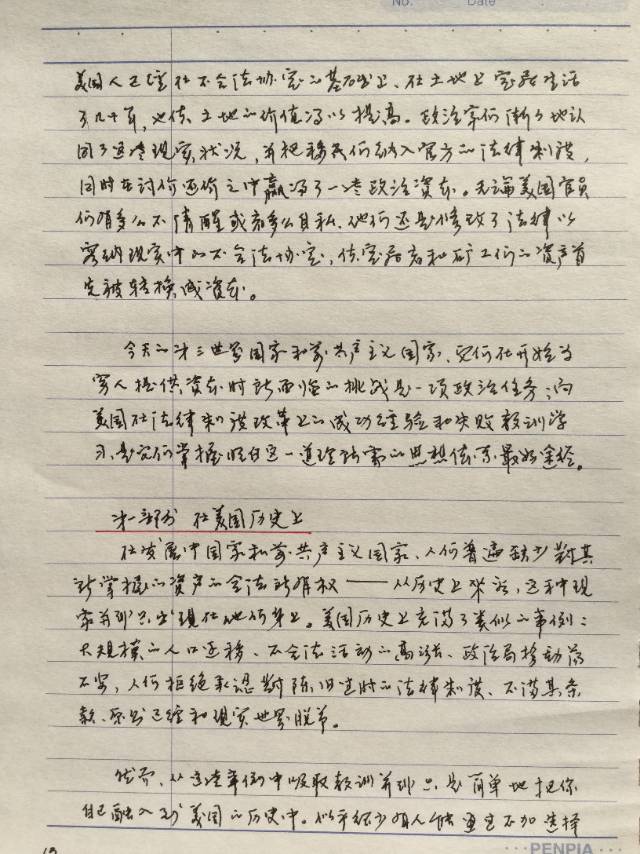 No. Date
美国人已经在不合法协定的基础上、在土地上定居生活
了几十年，也使土地的价值得以提高。政治家们渐渐地认
同了这些现实状况，并把移民们纳入官方的法律制度，
同时在讨价还价之中赢得了一些政治资本。无论美国官员
们有多么不情愿或有多么自私，他们还是修改了法律以
容纳现实中的不合法协定，使定居者和矿工们的资产首
先被转换成资本。
今天的第三世界国家和前共产主义国家、它们在开始为
穷人提供资本时所面临的挑战是一项政治任务；向
美国在法律制度改革上的成功经验和失败教训学
习、是它们掌握明白这一道理所需的思想体系最好途径。
第一部分 在美国历史上
在发展中国家和前共产主义国家、人们普遍缺少对其
所掌握的资产的合法所有权——从历史上来看，这种现
象并非只出现在他们身上。美国历史上充满了类似的事例：
大规模的人口迁移、不合法活动的高涨、政治局势动荡
不安，人们拒绝承认对陈旧过时的法律制度、不满某条
款、原则已经和现实世界脱节。
然而，从这些事例中吸取教训并非只是简单地把你
自己融入到美国的历史中。似乎很少有人能通过不加选择
PENPIA